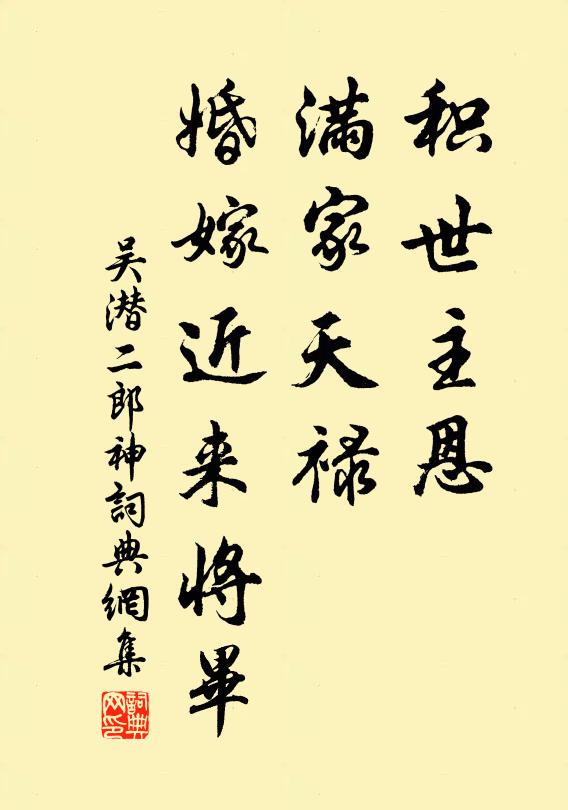 积世主恩
满家天禄
婚嫁近来将畢
吴潜二郎神詞典網集
詞典
网印